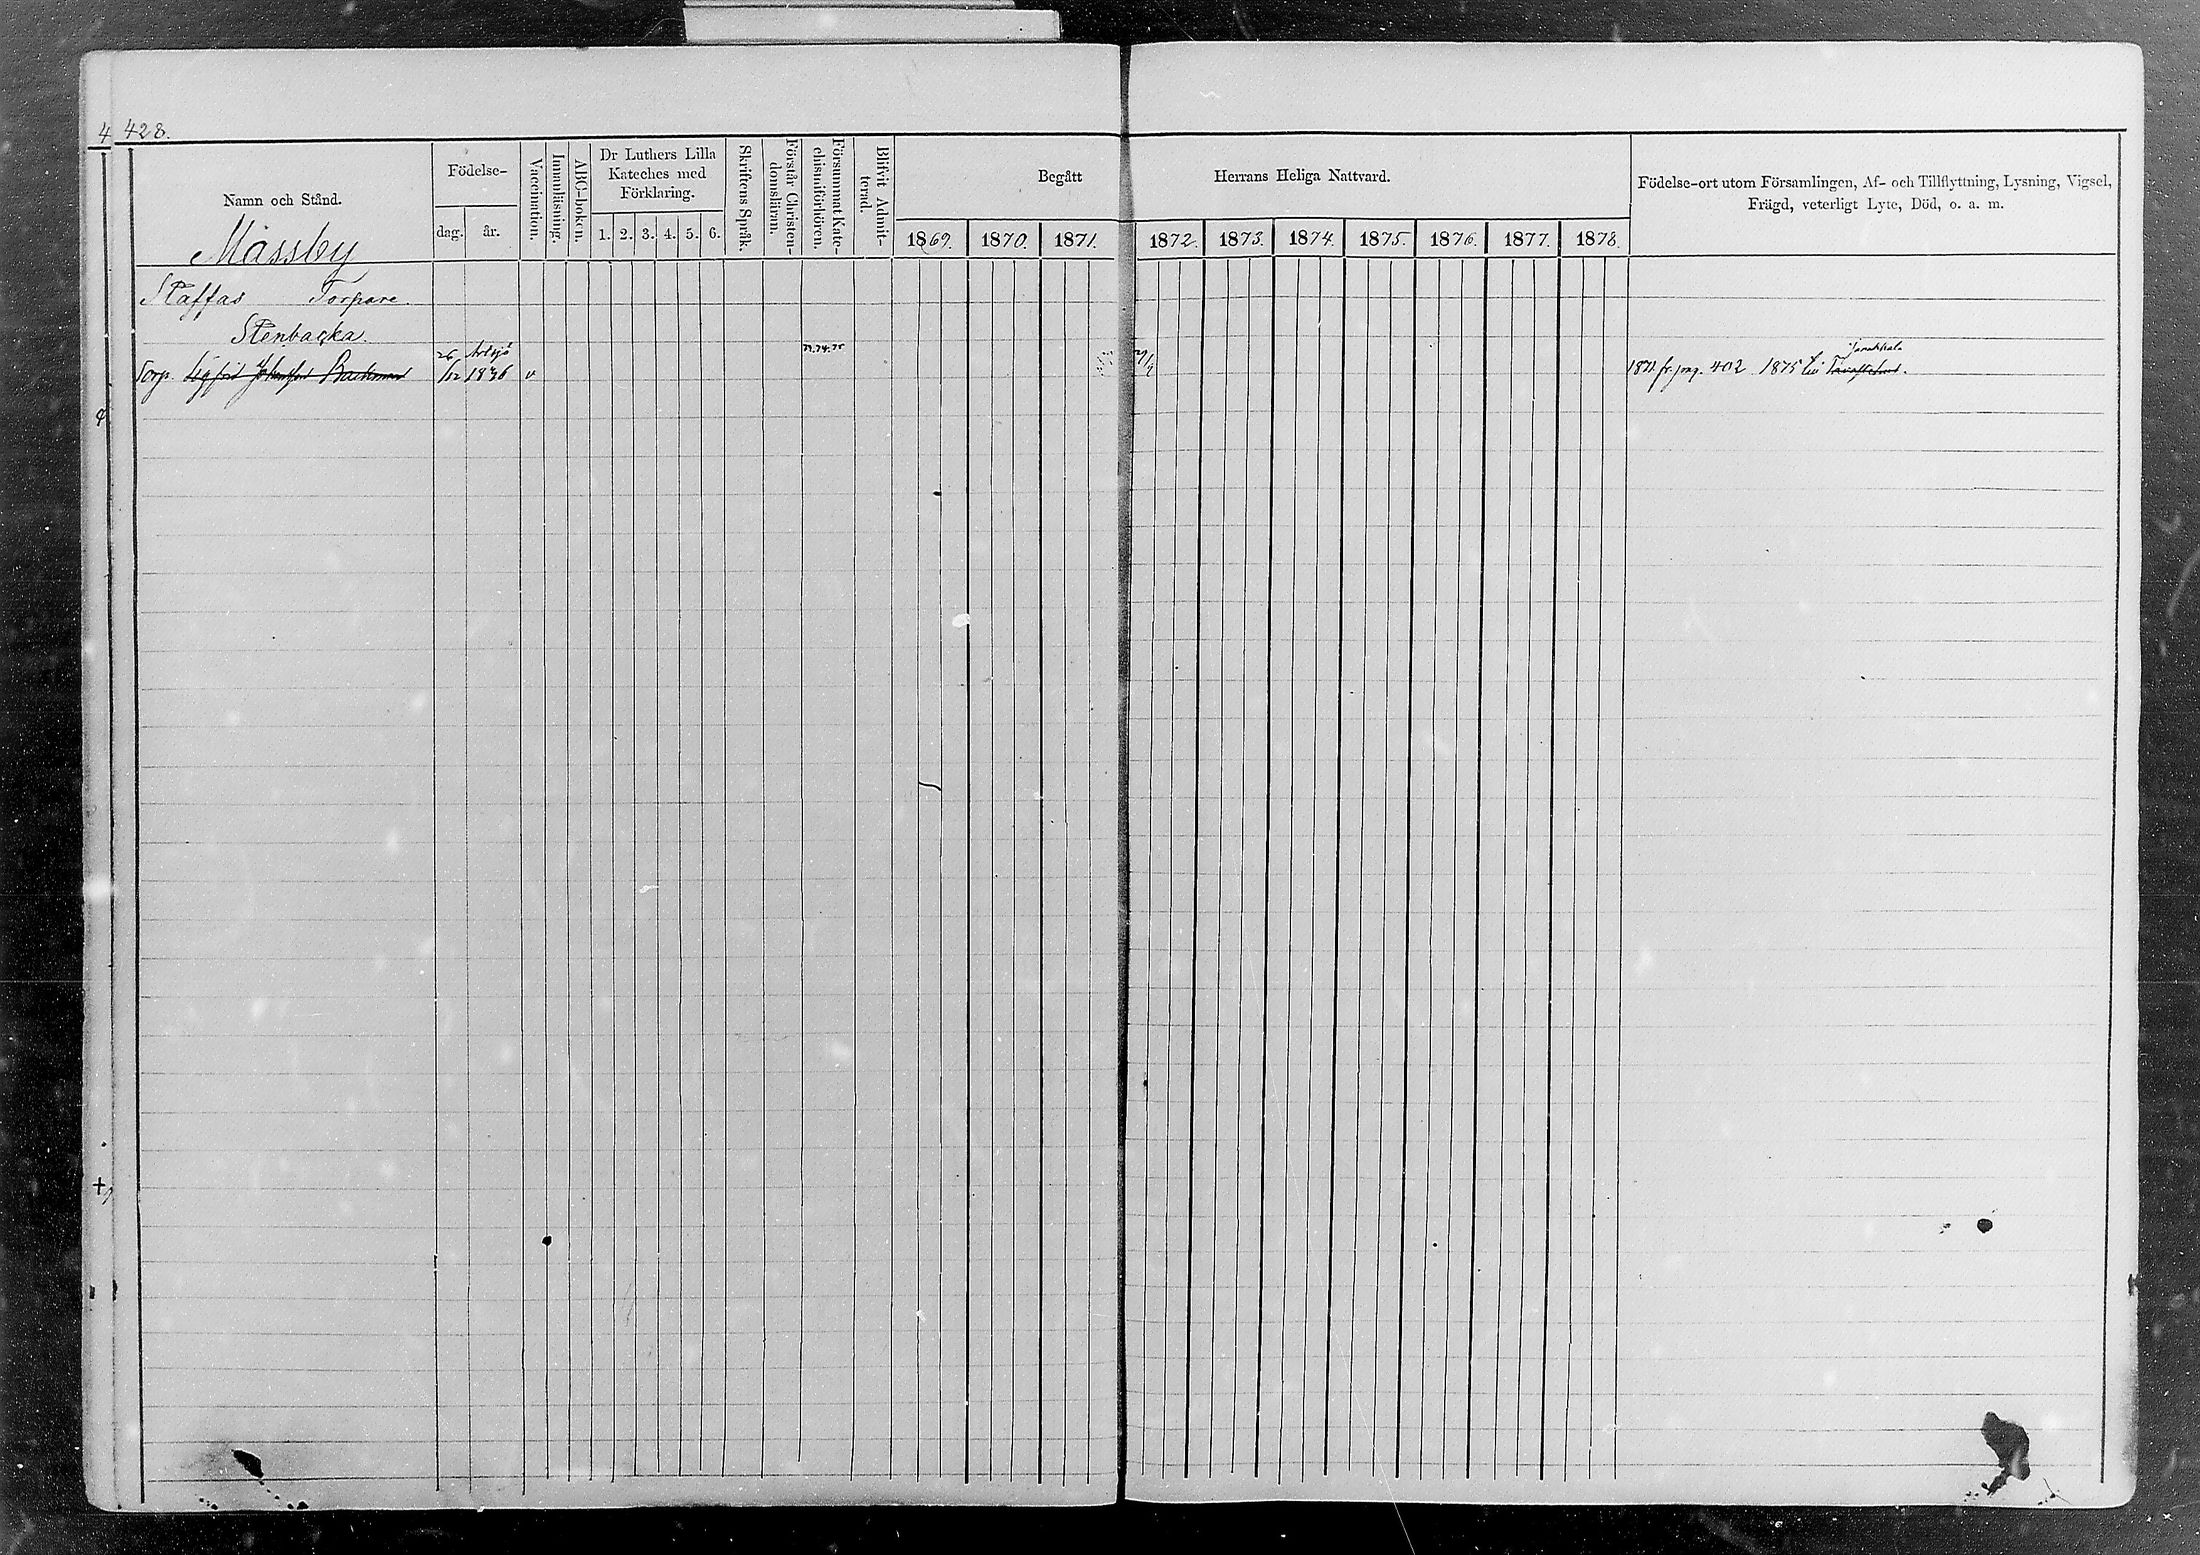 4 428.
Namn och Stånd.
Födelse-
dag. år.
Vaccination.
Innanläsning.
ABC-boken.
Dr Luthers Lilla
Kateches med
Förklaring.
1. 2. 3. 4. 5. 6.
Skriftens Språk.
Förstår Christen-
domsläran.
Försummat Kate-
chismiförhören.
Blifvit Admit-
terad.
Begått Herrans Heliga Nattvard.
1869. 1870. 1871. 1872. 1873. 1874. 1875. 1876. 1877. 1878.
Födelse-ort utom Församlingen, Af- och Tillflyttning, Lysning, Vigsel,
Frägd, veterligt Lyte, Död, o. a. m.
Mässby
Staffas Torpare.
Stenbacka.
26 Artsjö 73.74.75 Janakkala
Torp. Sigfrid Johansson Backman /12 1836 v 1871. fr. pag. 402 1875 till